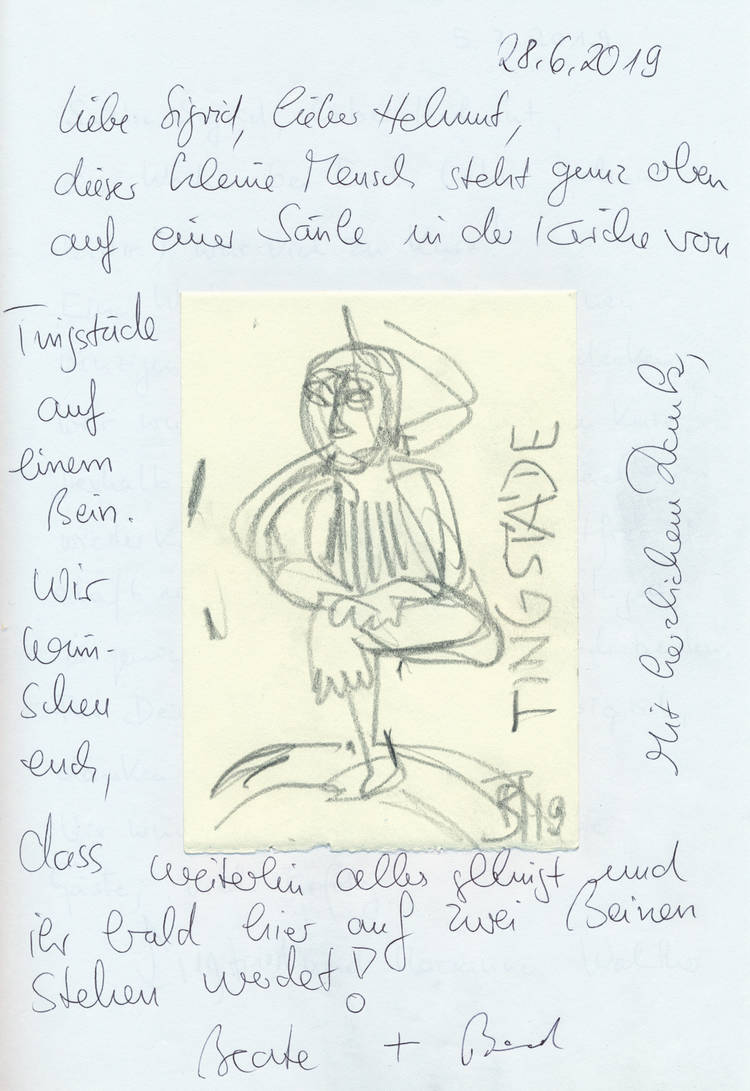 28.6.2019
Liebe Sigrid, lieber Helmut,
dieser kleine Mensch steht ganz oben
auf einer Säule in der Kirche von
Tingstäde
auf
einem
Bein.
Wir
wün-
schen
euch,
dass weiterhin alles gelingt und
ihr bald hier auf zwei Beinen
stehen werdet!
Mit herzlichem Dank,
Beate + Bernd
TINGSTÄDE